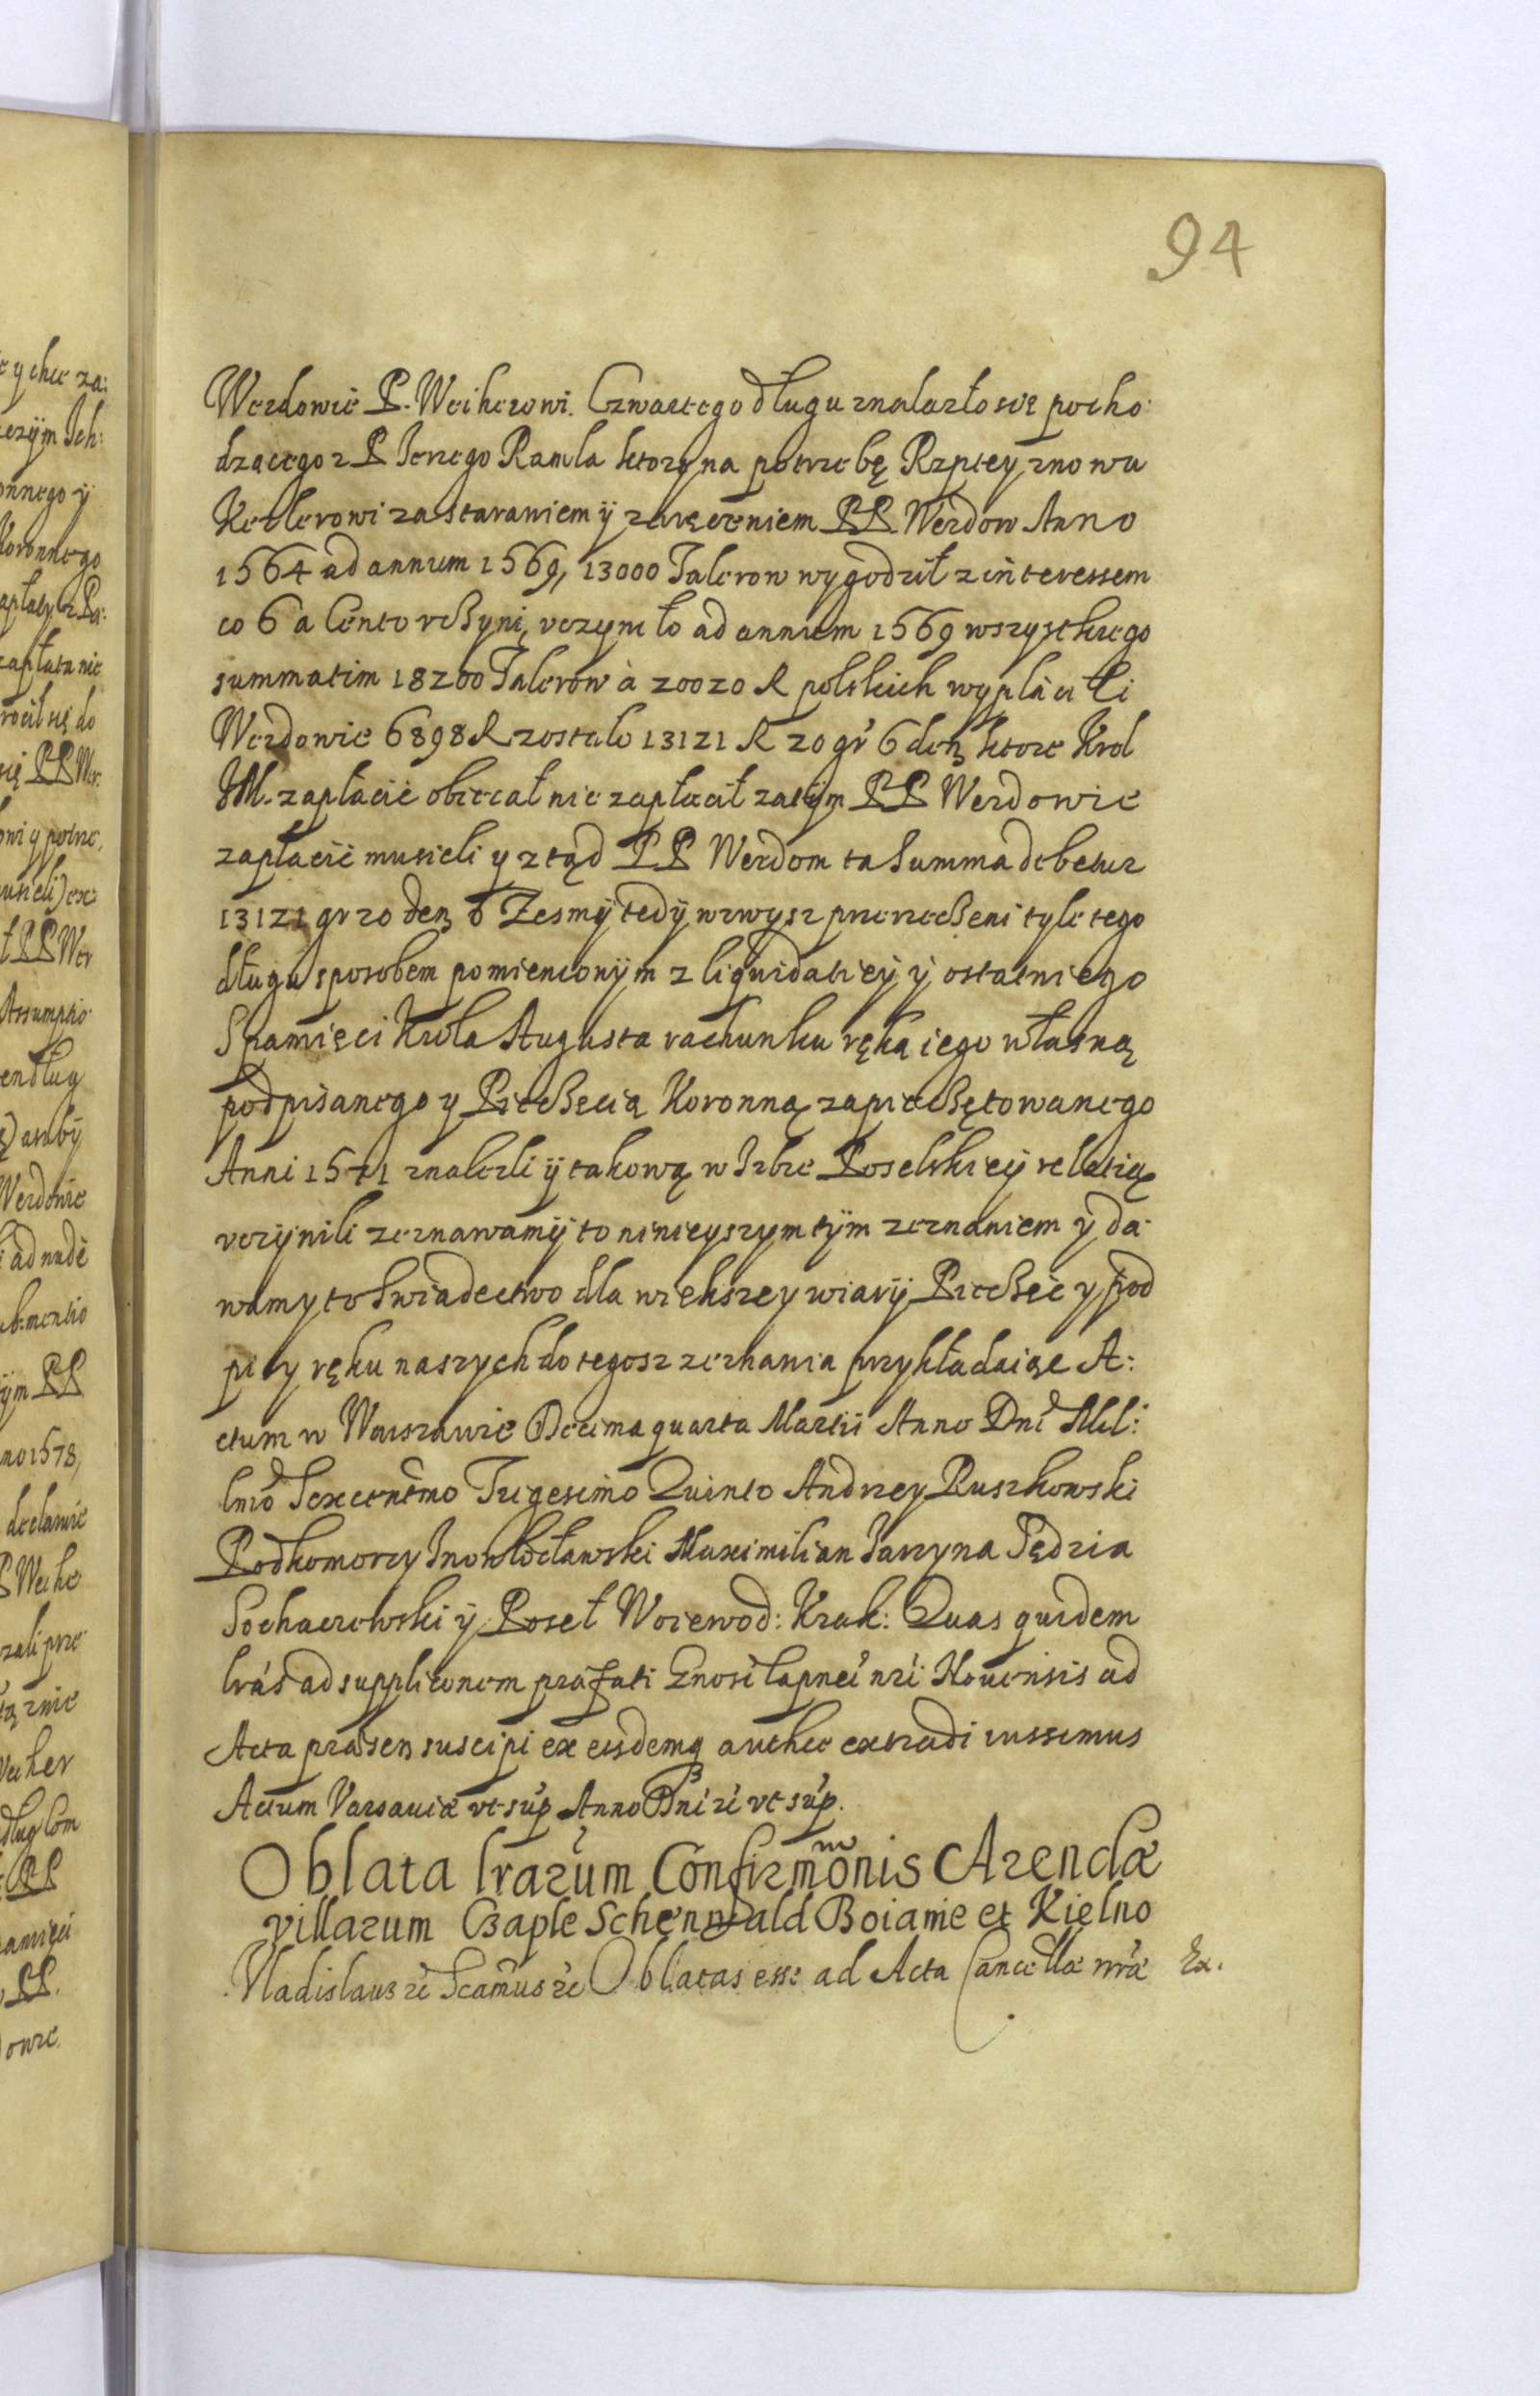 94
Werdowie P. Weiherowi. Czwartego długu znalazło sie pocho:
dzącego z P Jerzego Ramla ktory na potrzebę Rzptey znowu
Ketlerowi za staraniem ÿ zaręczeniem PP. Werdow Anno
1564 ad annum 1569, 13000 Talerow wygodził z interessem
co 6 a Cento rchyni, vczyniło ad annum 1569 wszystkiego
summatim 18200 Talerow à 20020 R polskich wypłacili
Werdowie 6898 R zostało 13121 R 20 gr 6 den ktore Krol
JM. zapłacić obiecał nie zapłacił zatÿm PP Werdowie
zapłacić musieli y ztąd PP Werdom ta Summa debetur
13121 gr 20 den 6 Zesmÿ tedÿ wzwysz przerzeczeni tyle tego
długu sposobem pomienionÿm z liquidatieÿ ÿ ostatniego
S pamięci Krola Augusta rachunku ręką iego własną
podpisanego y Pieczęcią Koronną zapieczętowanego
Anni 1571 znalezli ÿ takową w Izbie Poselskieÿ relatią
vczÿnili zeznawamÿ to ninieyszym tÿm zeznaniem y da:
wamy to Swiadectwo dla wiekszey wiarÿ Pieczęć y pod
pisy ręku naszych do tegosz zeznania przykładaiąc A:
ctum w Warszawie Decima quarta Martii Anno Dni Mil:
lmo Sexcentmo Trigesimo Quinto Andrzey Ruszkowski
Podkomorzy Inowłocławski Maximilian Jarzyna Sędzia
Sochaczewski ÿ Poseł Woiewod: Krak: Quas quidem
lras ad supplicionem præfati Gnosi Capnei nri Hovensis ad
Acta præsen suscipi ex eisdemq authce extradi iussimus
Actum Varsaviæ vt sup Anno Dni zc vt sup.
Oblata lrarum Confirmonis Arendæ
villarum Czaple Schenwald Boianie et Kielno
Vladislaus zc Scamus zc Oblatas esse ad Acta Cancellæ nræ Ex.